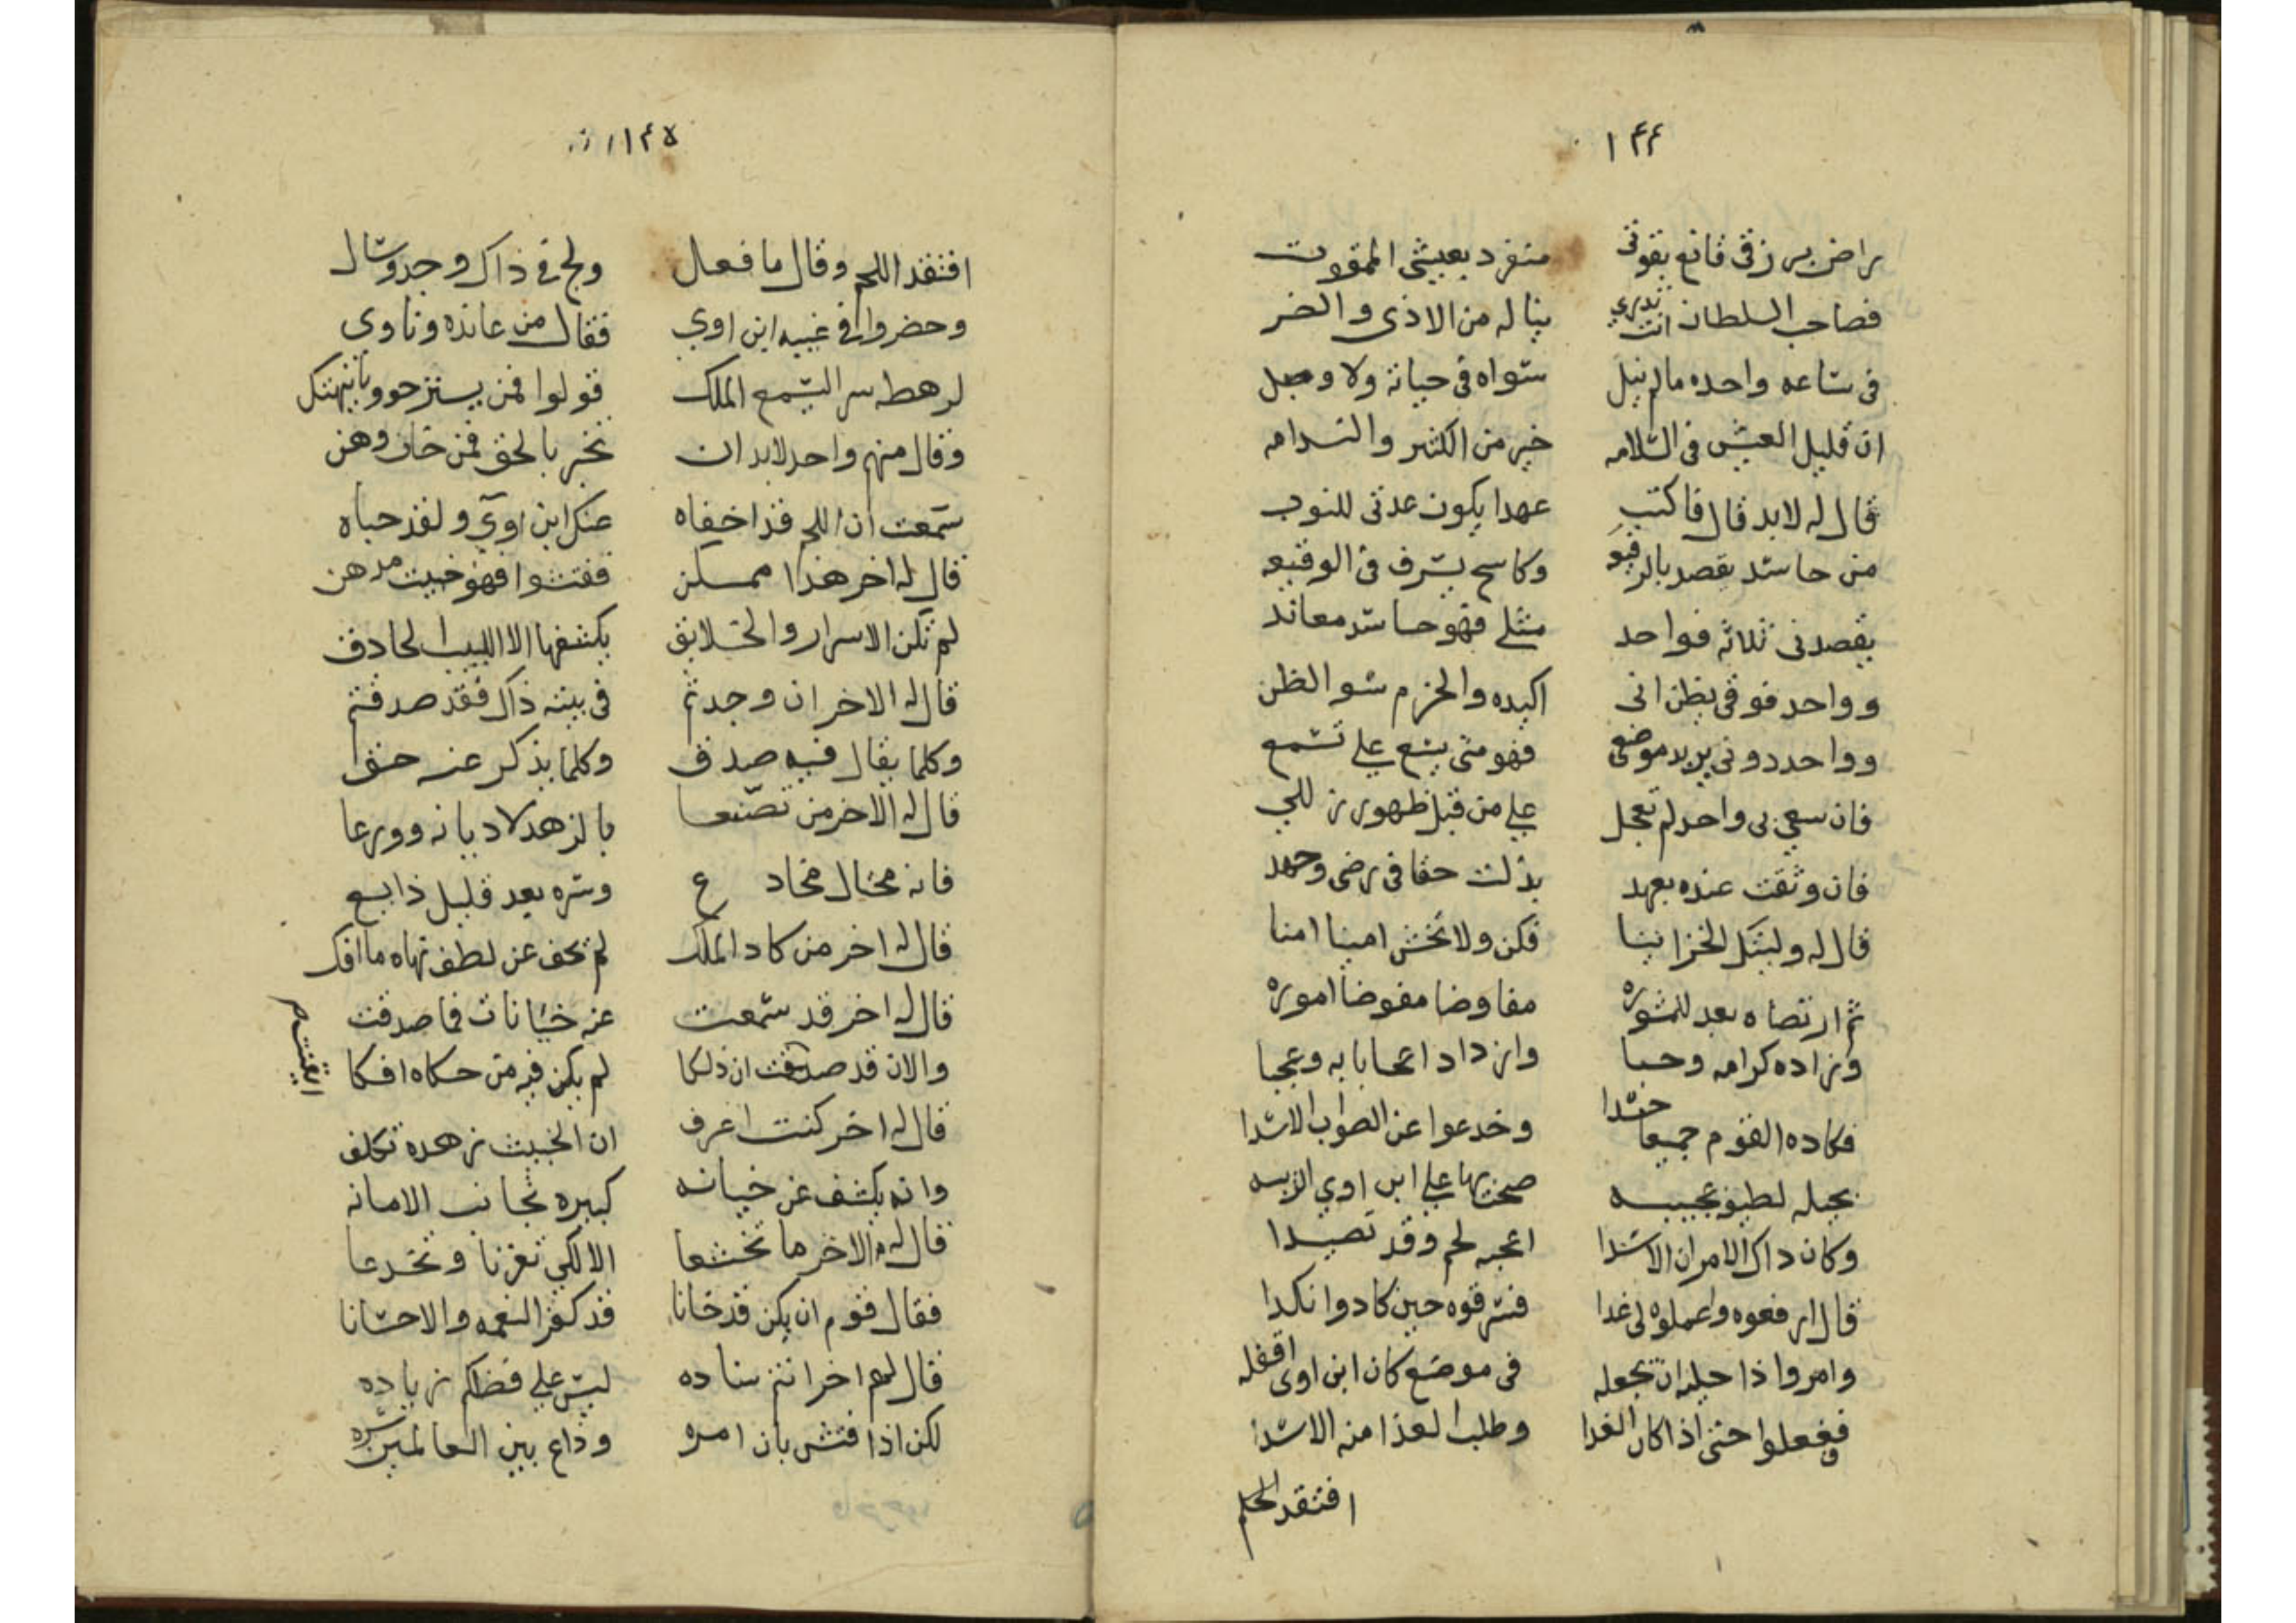 ١٤٤
راض برزقي قانع بقوتي منفرد بعيشي الممقوت
فصاحب السلطان انت تدري يناله من الاذي والضر
في ساعه واحده ما لم ينل سواه في حياته ولا وصل
ان قليل العيش في السلامه خير من الكثير والندامه
قال له لابد قال فاكتب عهدا يكون عدتي للنوب
من حاسد يقصد بالرفيعه وكاشح يسرف في الوقيعه
يقصدني ثلاثه فواحد مثلي فهو حاسد معاند
وواحد فوقي يظن اني اكيده والحزم سو الظن
وواحد دوني يريد موضعي فهو متى يسع علي تسمع
فان سعي بي واحد لم تعجل علي من قبل ظهور زللي
فان وثقت عنده بعهد بذلت حقا في رضى وحمد
قال له وليتك الخزاينا فكن ولا تخش امينا امنا
ثم ارتضاه بعد للمشوره مفاوضا مفوضا اموره
وزاده كرامه وحبا وازداد اعجابا به وعجبا
فكاده القوم جميعا حسدا وخدعوا عن الصواب الاسدا
بحيله لطيفه عجيبه صحت بها علي ابن اوي الريبه
وكان ذاك الامر ان الاسدا اعجبه لحم وقد تصيدا
قال ارفعوه واعملوه لي غدا فسرقوه حين كادوا نكدا
وامروا ذا حيله ان يجعله في موضع كان ابن اوى اقفله
ففعلوا حتى اذا كان الغدا وطلب الغذا منه الاسدا
افتقد اللحم
١٤٥
افتقد اللحم وقال ما فعل ولج في ذاك وجد وسال
وحضروا في غيبه ابن اوي فقال من عانده وناوى
لرهطه سرا ليسمع الملك قولوا فمن يستنزحوو بانيهتك
وقال منهم واحد لابد ان نخبر بالحق فمن خان وهن
سمعت ان اللحم قد اخفاه عنك ابن اوي ولقد حباه
قال له اخر هذا ممكن ففتشوا فهو خبيث مدهن
لم تكن الاسرار والخلايق يكشفها الا اللبيب الحاذق
قال له الاخر ان وجدتم في بيته ذاك فقد صدقتم
وكلما يقال فيه صدق وكلما يذكر عنه حق
قال له الاخر من تصنعا بالزهد لا ديانه وورعا
فانه محتال مخادع وسره بعد قليل ذايع
قال له اخر من كاد الملك لم يخف عن لطف نهاه ما افك
قال له اخر قد سمعت عنه خيانات فما صدقت
والان قد صدقت ان ذلكا لم يكن فيه من حكاه افكا
ايقنت م
قال له اخر كنت اعرف ان الخبيث زهده تكلف
وانه يكشف عن خيانه كبيره تجانب الامانه
قال له الاخر ما تخشعا الا لكي تغرنا وتخدعا
فقال قوم ان يكن قد خانا قد كفر النعمه والاحسانا
قال لهم اخر انتم ساده ليس علي فضلكم زياده
لكن اذا فتش بان امره وذاع بين العالمين سره